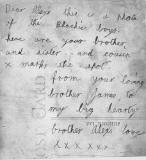 Dear Alex this is a Photo
of the Blackie boys.
here are your brother
and sister and cousin
x marks the spot
from your loving
brother James to
my big hearty
brother Alex love
x x x x x